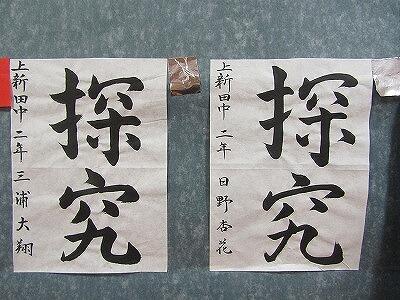 探究
上新田中 二年 三浦大翔
探究
上新田中 二年 日野杏花